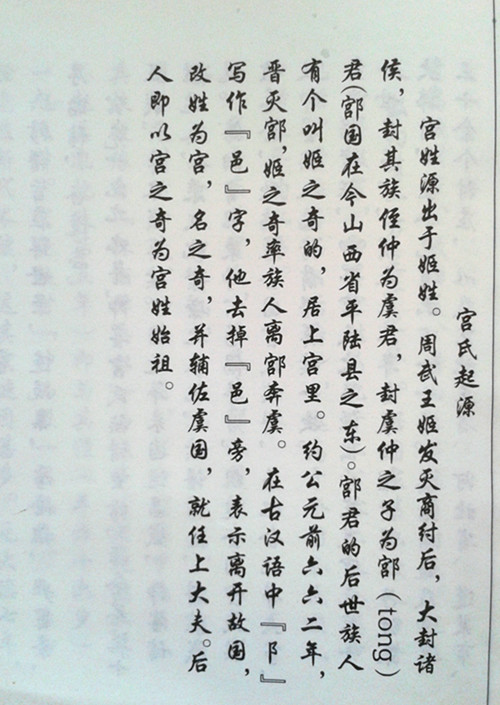 宫氏起源
宫姓源出于姬姓。周武王姬发灭商纣后，大封诸
侯，封其族侄仲为虞君，封虞仲之子为郃（tong）
君（郃国在今山西省平陆县之东）。郃君的后世族人
有个叫姬之奇的，居上宫里。约公元前六六二年，
晋灭郃，姬之奇率族人离郃奔虞。在古汉语中『阝』
写作『邑』字，他去掉『邑』旁，表示离开故国，
改姓为宫，名之奇，并辅佐虞国，就任上大夫。后
人即以宫之奇为宫姓始祖。